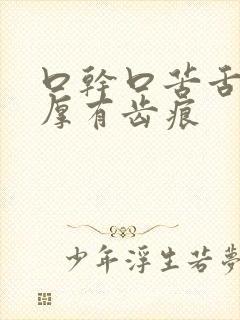 口幹口苦舌
厚有齿痕
少年浮生若夢